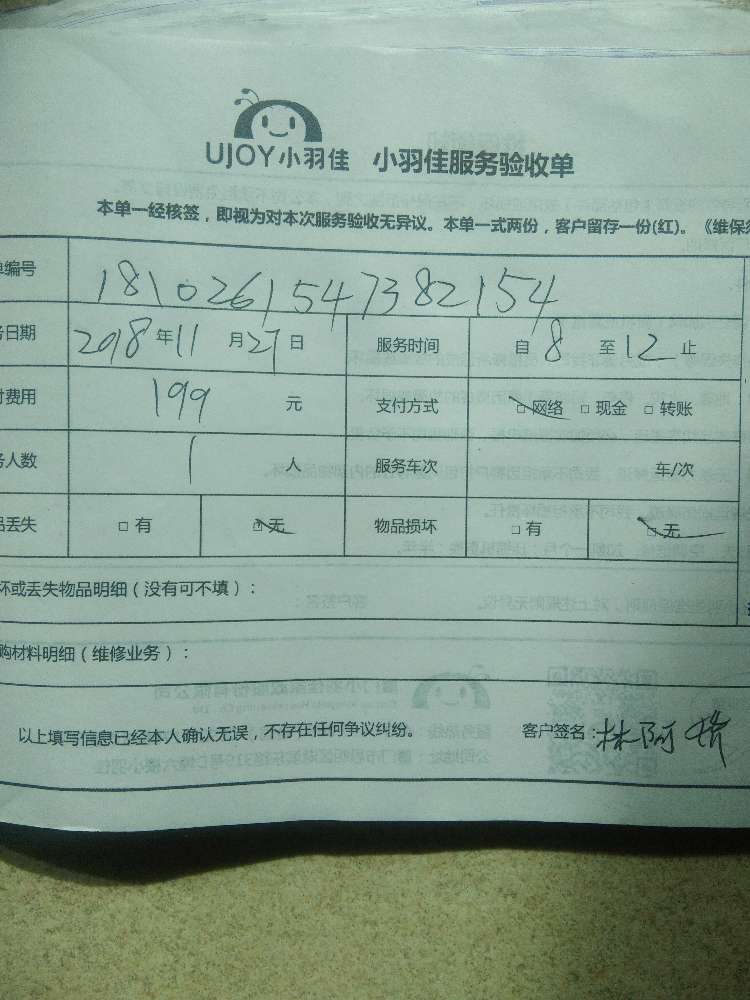 UJOY小羽佳 小羽佳服务验收单
本单一经核签，即视为对本次服务验收无异议。本单一式两份，客户留存一份(红)。《维保须
单编号 1810261547382154
务日期 2018年11月27日 服务时间 自8至12止
付费用 199元 支付方式 □网络 □现金 □转账
务人数 1人 服务车次 车/次
品丢失 □有 □无 物品损坏 □有 □无
坏或丢失物品明细（没有可不填）：
购材料明细（维修业务）：
以上填写信息已经本人确认无误，不存在任何争议纠纷。 客户签名：林阿